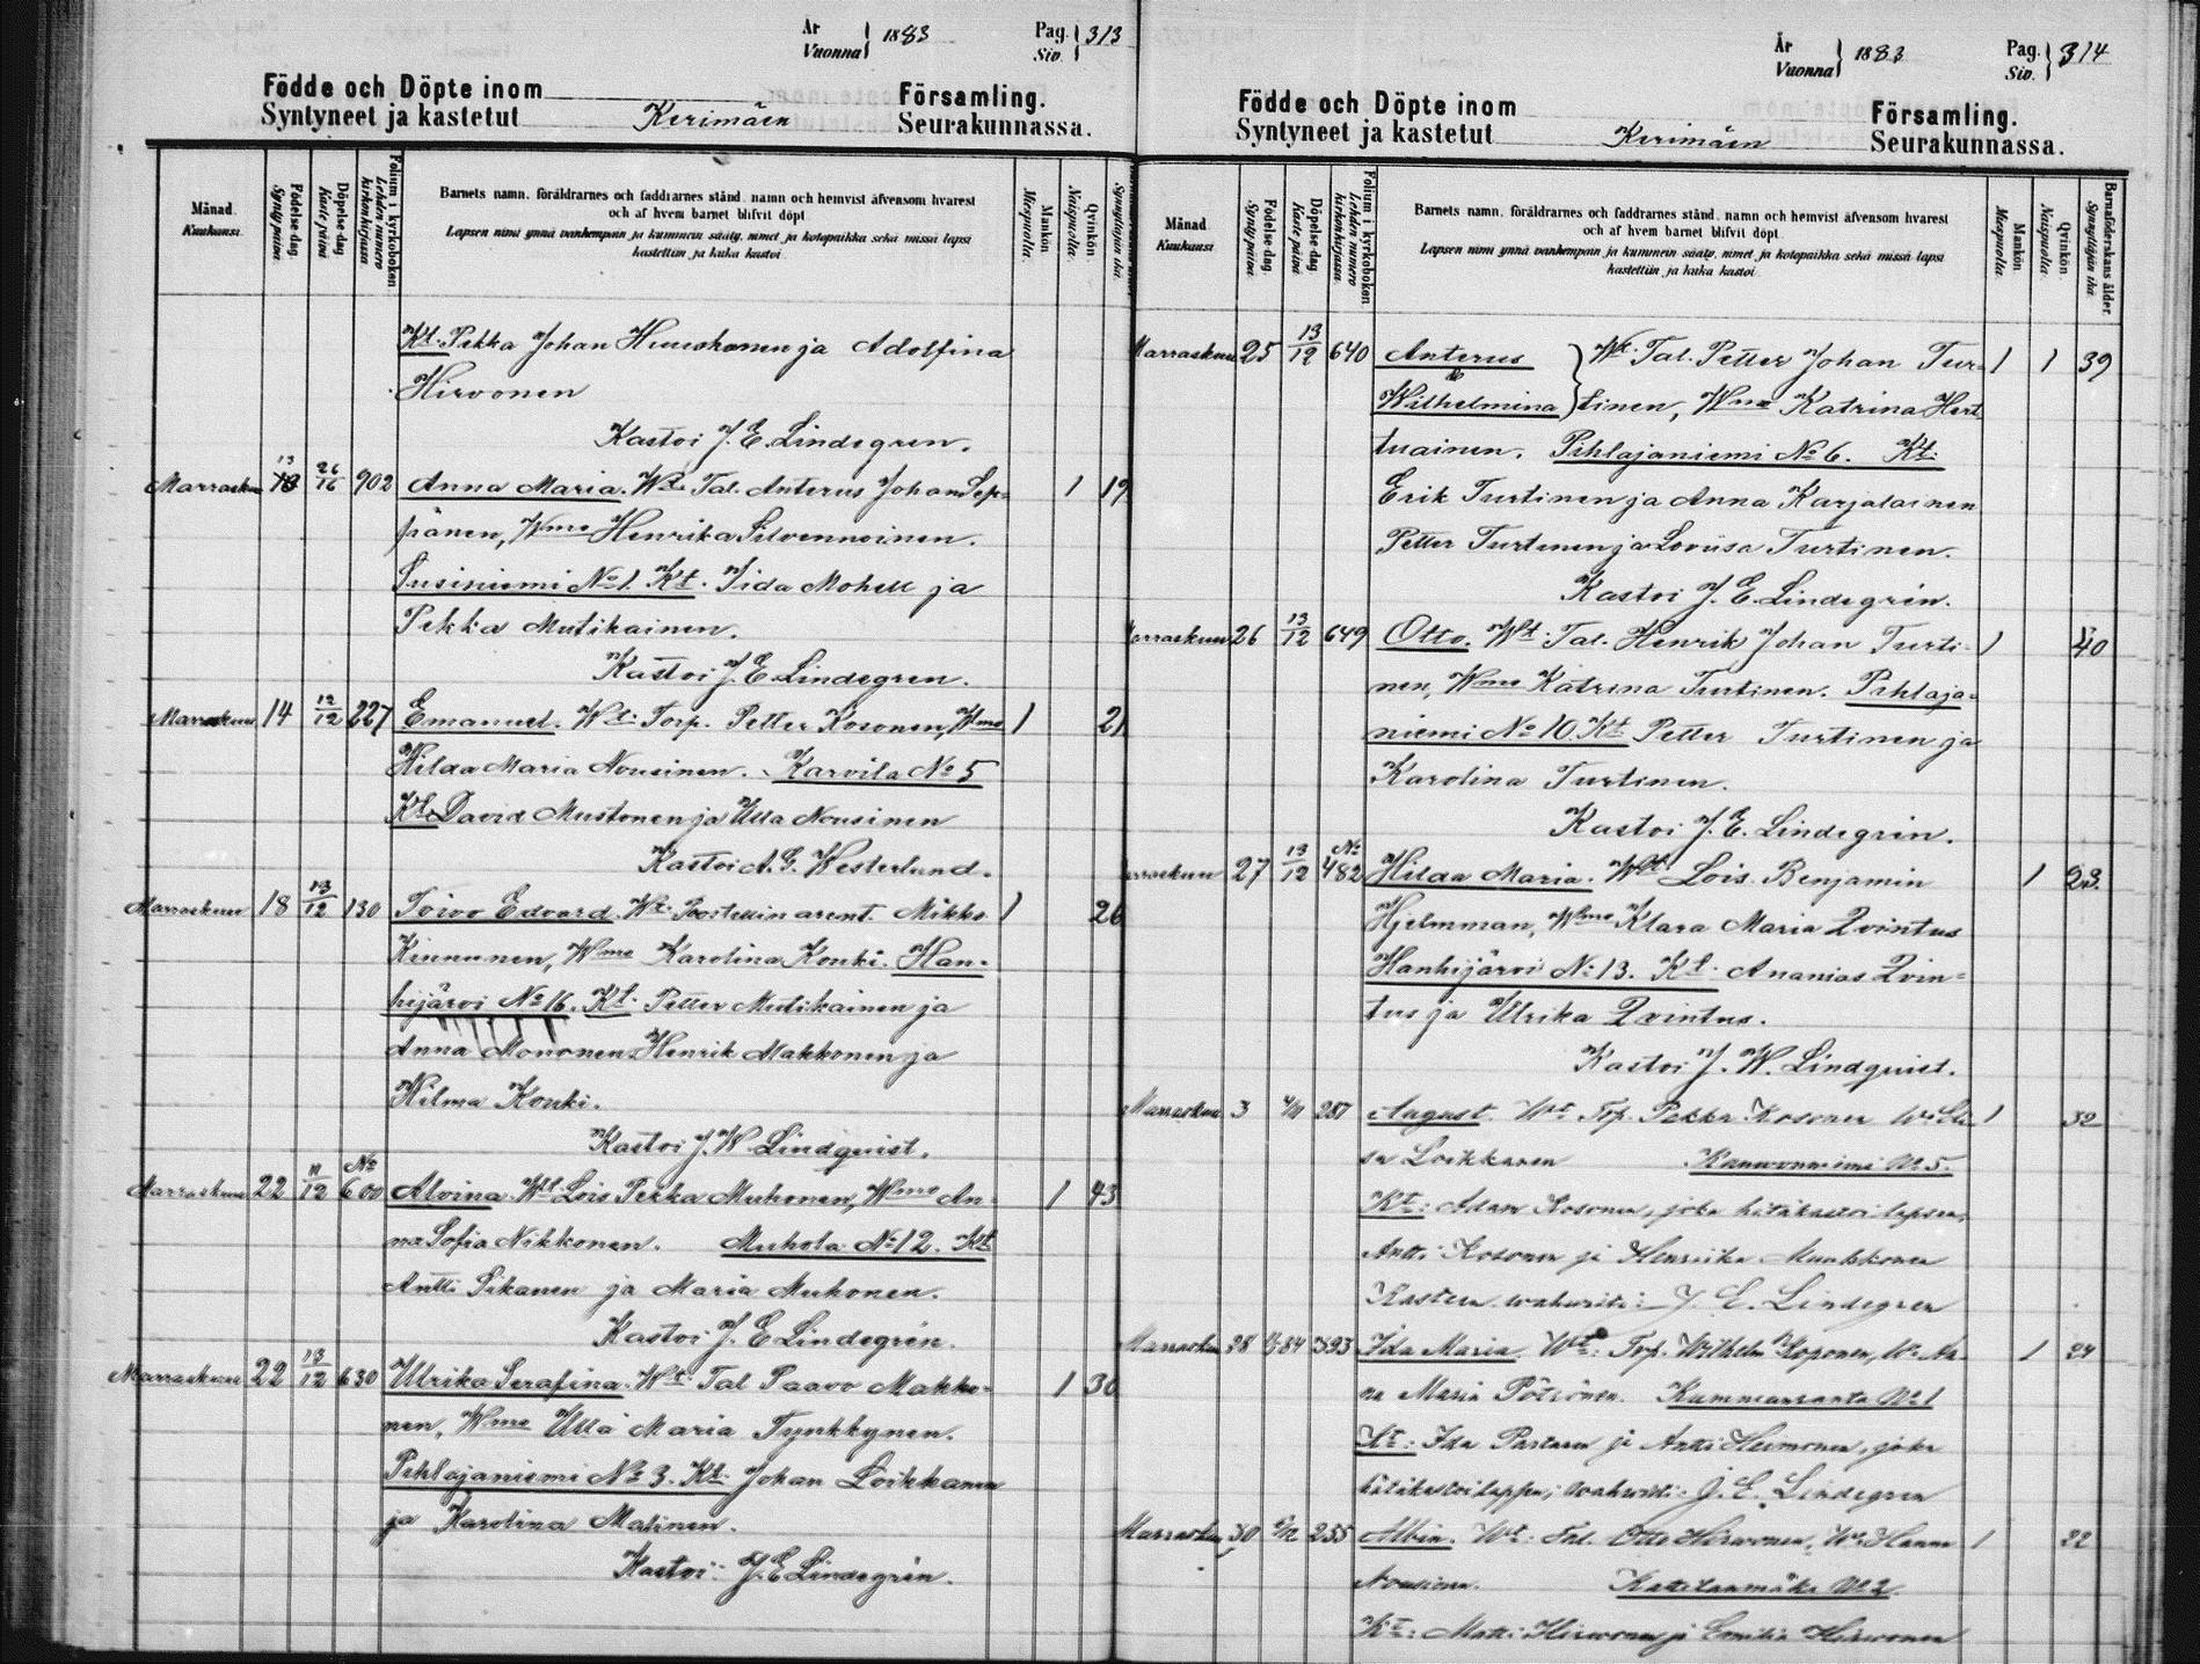 År 1883 Pag. 313
Vuonna Siv.
Födde och Döpte inom Församling.
Syntyneet ja kastetut Kerimäen Seurakunnassa.
Månad. Kuukausi. Födelse dag. Synty päinä. Döpelse dag. Kaste päinä. Folium i kyrkoboken. Lehden numero kirkonkirjassa.
Barnets namn, föräldrarnes och faddrarnes stånd, namn och hemvist äfvensom hvarest
och af hvem barnet blifvit döpt.
Lapsen nimi ynnä vanhempain ja kummein sääty, nimet ja kotopaikka sekä missä lapsi
kastettiin ja kuka kastoi.
Mankön Miespuolta. Qvinkön Naispuolta. Synnyttäjän ikä
Kt. Pekka Johan Huuskonen ja Adolfina
Hirvonen
Kastoi J. E. Lindegren.
Marrasku 13 26/16 902 Anna Maria. Wt. Tal. Anterus Johan Lep= 1 19
pänen, Wmo Henrika Silvennoinen.
Susiniemi No 1. Kt. Iida Mohell ja
Pekka Mutikainen.
Kastoi J. E. Lindegren.
Marraskuu 14 12/12 227 Emanuel. Wt: Torp. Petter Kosonen, Wmo 1 21
Hilda Maria Nousinen. Karvila No 5
Kt. David Mustonen ja Ulla Nousinen
Kastoi A. G. Westerlund.
Marraskuu 18 13/12 130 Toivo Edvard. Wt. Postellin arent. Mikko 1 26
Kinnunen, Wmo Karolina Konki. Han=
hijärvi No 16. Kt. Petter Mutikainen ja
Anna Mononen Henrik Makkonen ja
Hilma Konki.
Kastoi J. W. Lindquist.
Marraskuu 22 11/12 No 600 Alvina Wt. Lois Pekka Muhonen, Wmo An= 1 43
na Sofia Nikkonen. Muhola No 12. Kt
Antti Sikanen ja Maria Muhonen.
Kastoi J. E. Lindegrén.
Marraskuu 22 13/12 630 Ulrika Serafina. Wt. Tal Paavo Makko= 1 30
nen, Wmo Ulla Maria Tynkkynen.
Pihlajaniemi No 3. Kt. Johan Loikkanen
ja Karolina Malinen.
Kastoi: J. E. Lindegrén.
År 1883 Pag. 314
Vuonna Siv.
Födde och Döpte inom Församling.
Syntyneet ja kastetut Kerimäen Seurakunnassa.
Månad Kuukausi Födelse dag. Synty päinä. Döpelse dag. Kaste päinä Folium i kyrkoboken Lehden numero kirkonkirjassa
Barnets namn, föräldrarnes och faddrarnes stånd, namn och hemvist äfvensom hvarest
och af hvem barnet blifvit döpt.
Lapsen nimi ynnä vanhempain ja kummein sääty, nimet ja kotopaikka sekä missä lapsi
kastettiin ja kuka kastoi.
Mankön Miespuolta. Qvinkön Naispuolta. Barnaföderskans ålder. Synnyttäjän ikä
Marraskuu 25 13/12 640 Anterus Wt. Tal. Petter Johan Tur= 1 1 39
Wilhelmina tinen, Wmo Katrina Hert
tuainen. Pihlajaniemi No 6. Kt.
Erik Turtinen ja Anna Karjalainen
Petter Turtinen ja Loviisa Turtinen.
Kastoi J. E. Lindegrén.
Marraskuu 26 13/12 649 Otto. Wt: Tal. Henrik Johan Turti= 1 40
nen, Wmo Katrina Turtinen. Pihlaja=
niemi No 10. Kt. Petter Turtinen ja
Karolina Turtinen.
Kastoi J. E. Lindegrén.
Marraskuu 27 13/12 No 482 Hilda Maria. Wt. Lois Benjamin 1 23.
Hjelmman, Wmo Klara Maria Qvintus
Hanhijärvi No 13. Kt. Ananias Qvin=
tus ja Ulrika Qvintus.
Kastoi J. W. Lindquist.
Marraskuu 3 4/11 287 August. Wt Trp. Pekka Kosonen Wo 1 32
sa Loikkanen No 5.
Kt: Adam Kosonen, joka hätäkastoi lapsen,
Antti Kosonen ja Henriika
Kasteen wahwisti: J. E. Lindegren
Marrasku 28 84 Ida Maria. Wt: Trp. Wilhelm Koponen, Wo An- 1 24
na Maria Pöyrönen. No 1
Kt: Ida ja Antti Heimonen, joka
hätäkastoi lapsen; wahwisti: J. E. Lindegren
Marrasku 30 255 Albin. Wt: Otto Hirwonen, Wo Hanna 1 22
Nousinen. Kattilanmäki No 2
Kt: Matti Hirwonen ja Emilia Hirwonen